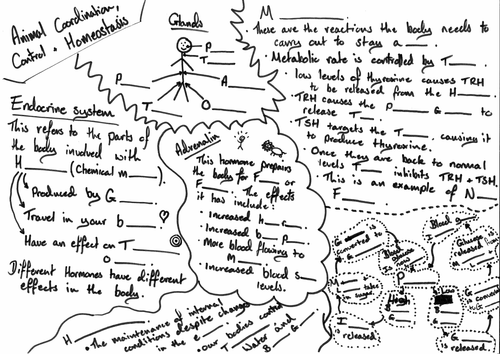 Animal Coordination,
Control + Homeostasis
Glands
P___
T___
P___
A___
T___
O___
M___
These are the reactions the body needs to
carry out to stay a___.
· Metabolic rate is controlled by T___.
· Low levels of thyroxine causes TRH
to be released from the H___
· TRH causes the P___ G___ to
release T___.
· TSH targets the T___ causing it
to produce thyroxine.
· Once they are back to normal
levels T___ inhibits TRH + TSH.
· This is an example of N___
F___.
Endocrine system
This refers to the parts of
the body involved with
H___ (Chemical m___).
Produced by G___
Travel in your b___
Have an effect on T___
O___
Different Hormones have different
effects in the body.
Adrenalin
This hormone prepares
the body for F___ or
F___. The effects
it has include:
· Increased h___ r___.
· Increased b___ p___
· More blood flowing to
M___
· Increased blood s___
levels.
H___
· The maintenance of internal
conditions despite changes
in the e___
· Our bodies control
T___
Water and
B___ G___.
G___ is
converted
Blood
Blood s___
Glucose
released
M___
take
sugar
P___
High
B___
G___
Low
B___
G___
I___
is released.
G___
is released.